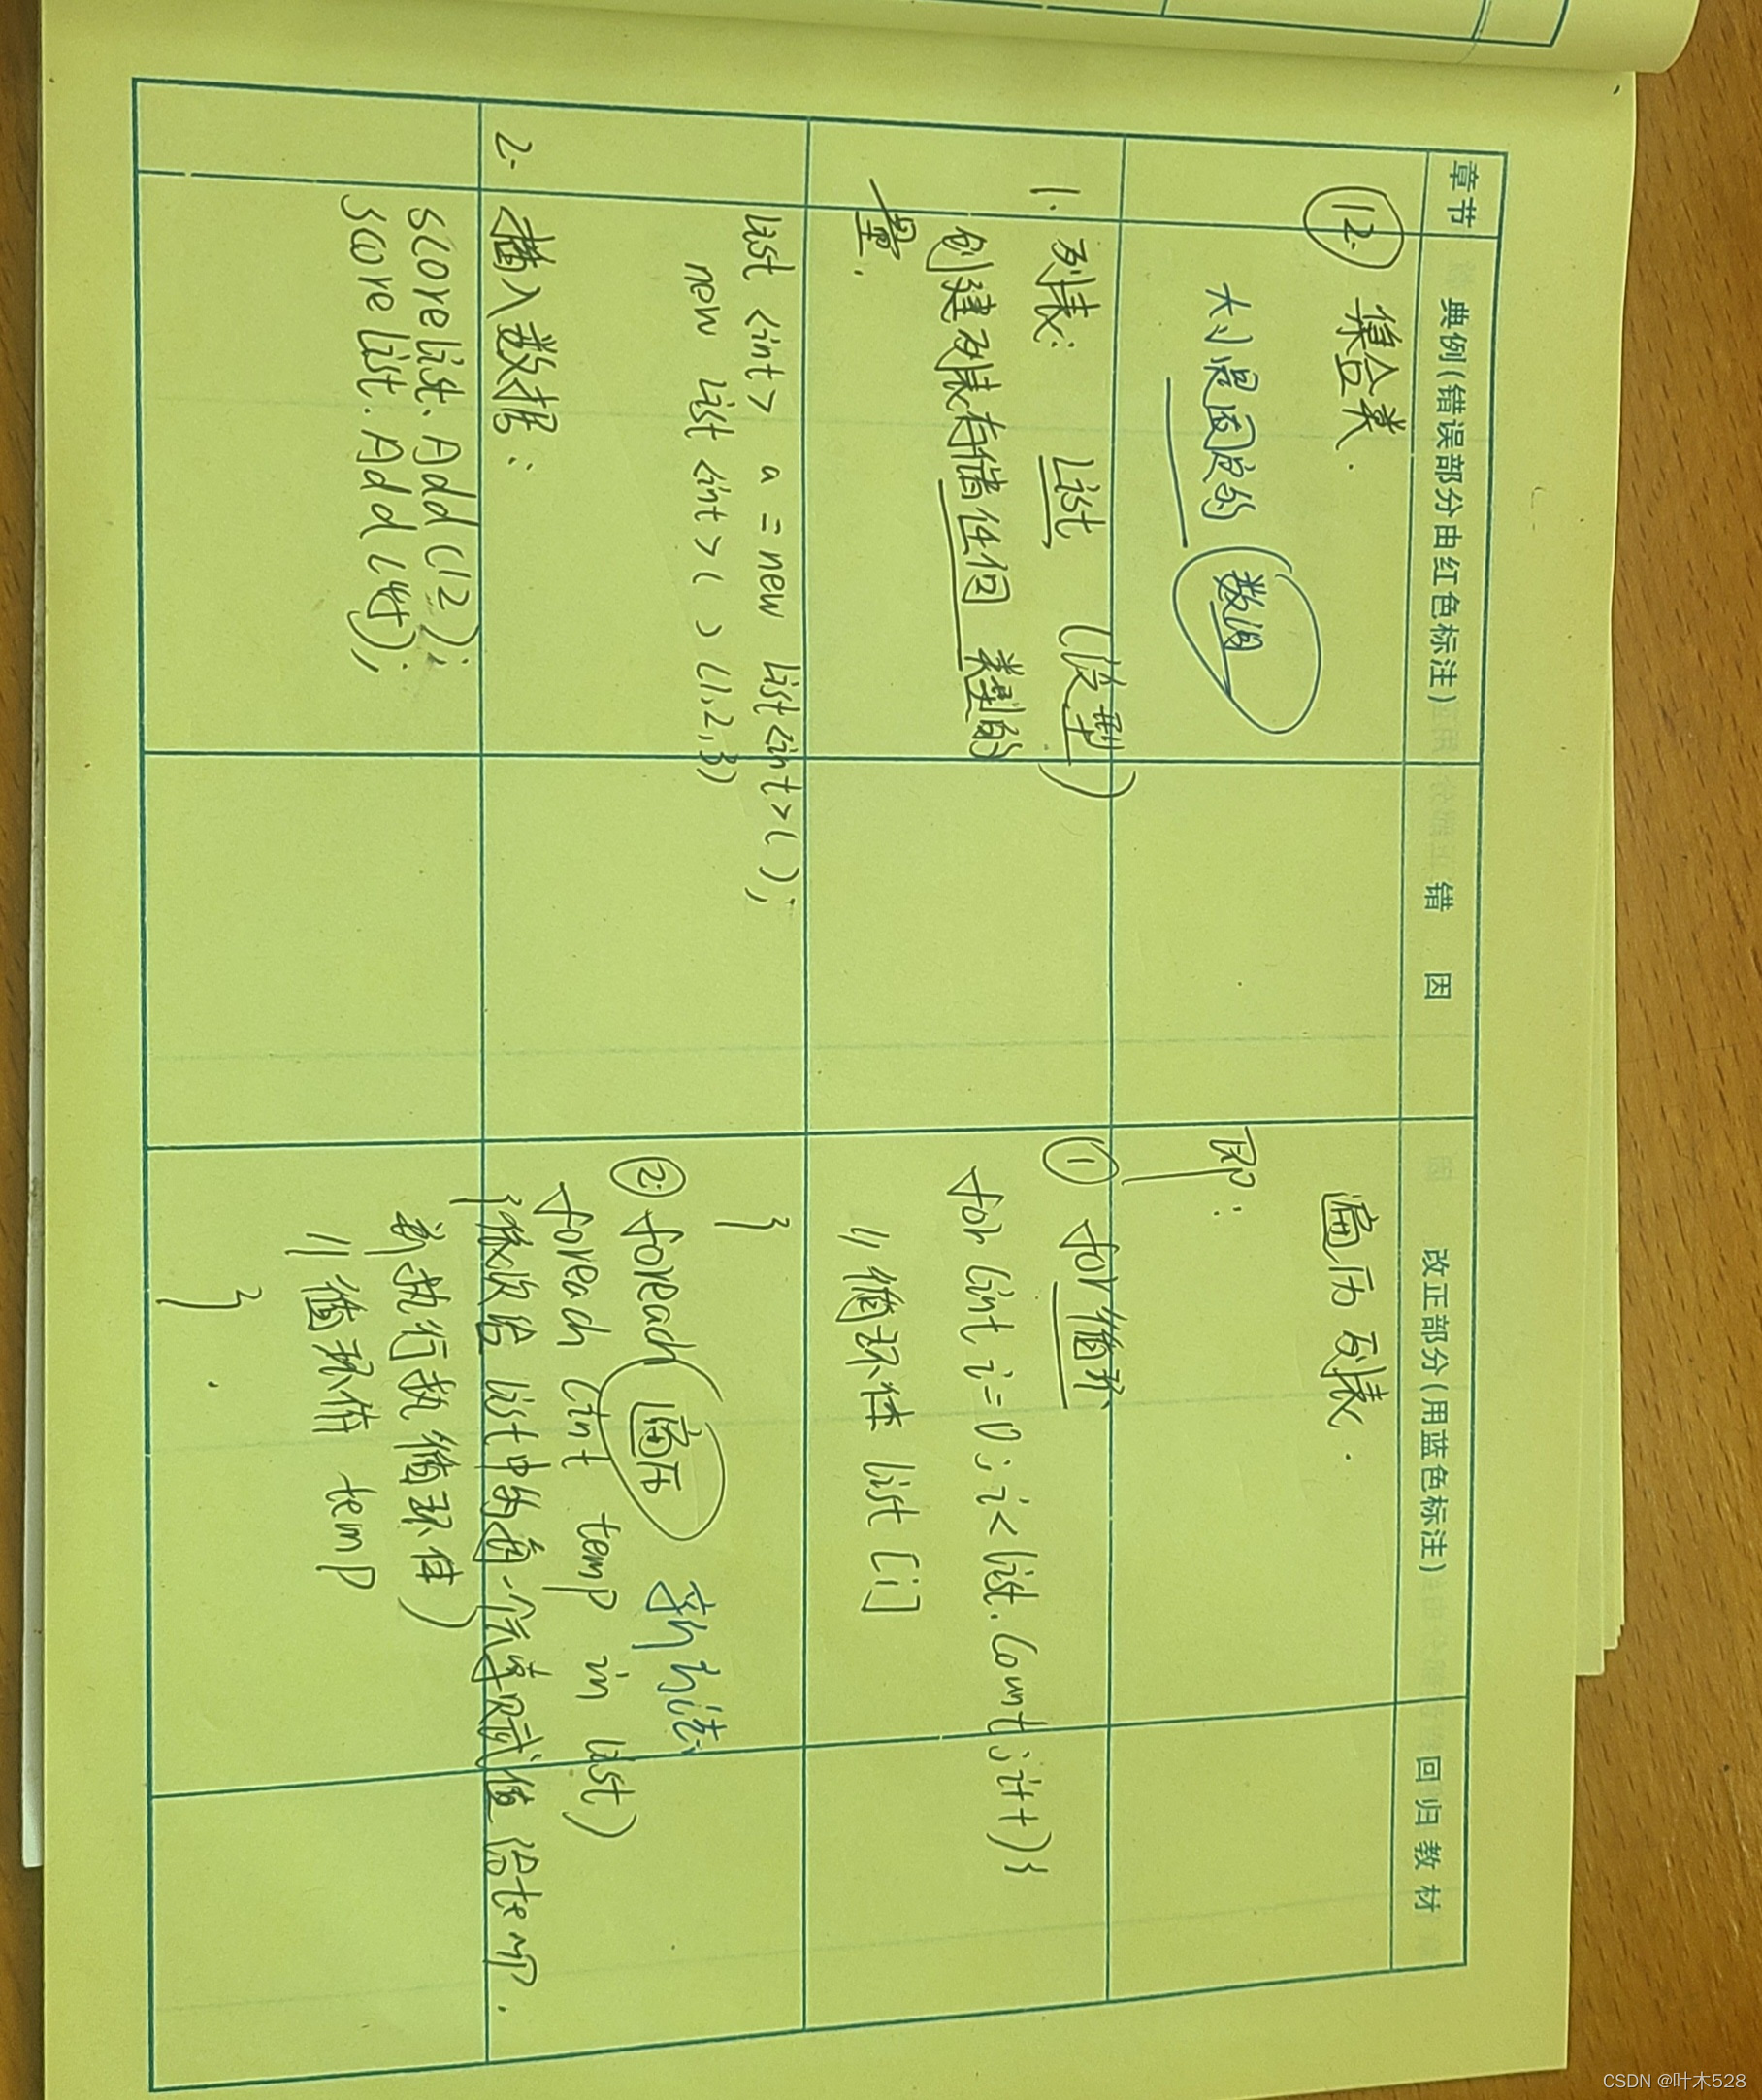 章节 典例(错误部分由红色标注) 错因 改正部分(用蓝色标注) 回归教材
12. 集合类.
大小是固定的 数组
1. 列表: List (泛型)
创建列表存储任何类型的
量.
list <int> a = new list<int>();
new list <int>()(1,2,3)
2. 插入数据:
scorelist. Add(12);
scorelist. Add(45);
遍历列表.
即:
① for循环
for(int i=0; i<list.Count; i++){
// 循环体 list[i]
}
② foreach 遍历 新方法
foreach (int temp in list)
{依次给list中的每一个元素赋值给temp.
并执行执循环体)
// 循环体 temp
}
CSDN @叶木528